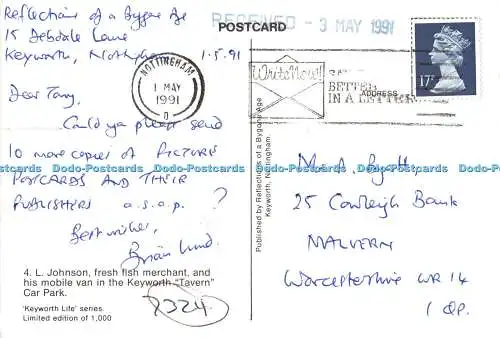 Reflections of a Bygone Age
15 Debdale Lane
Keyworth, Nottingham
1.5.91
Dear Tony,
Could you please send
10 more copies of PICTURE
POSTCARDS AND THEIR
PUBLISHERS a.s.a.p. ?
Best wishes,
Brian Lund
4. L. Johnson, fresh fish merchant, and
his mobile van in the Keyworth "Tavern"
Car Park.
'Keyworth Life' series.
Limited edition of 1,000
7324
RECEIVED - 3 MAY 1991
POSTCARD
NOTTINGHAM
1 MAY
1991
Write Now!
BETTER
IN A LETTER
ADDRESS
17P
Published by Reflections of a Bygone Age
Keyworth, Nottingham.
Mr A. Byatt
25 Cowleigh Bank
MALVERN
Worcestershire WR14
1QP.
Dodo-Postcards Dodo-Postcards Dodo-Postcards Dodo-Postcards Dodo-Postcards